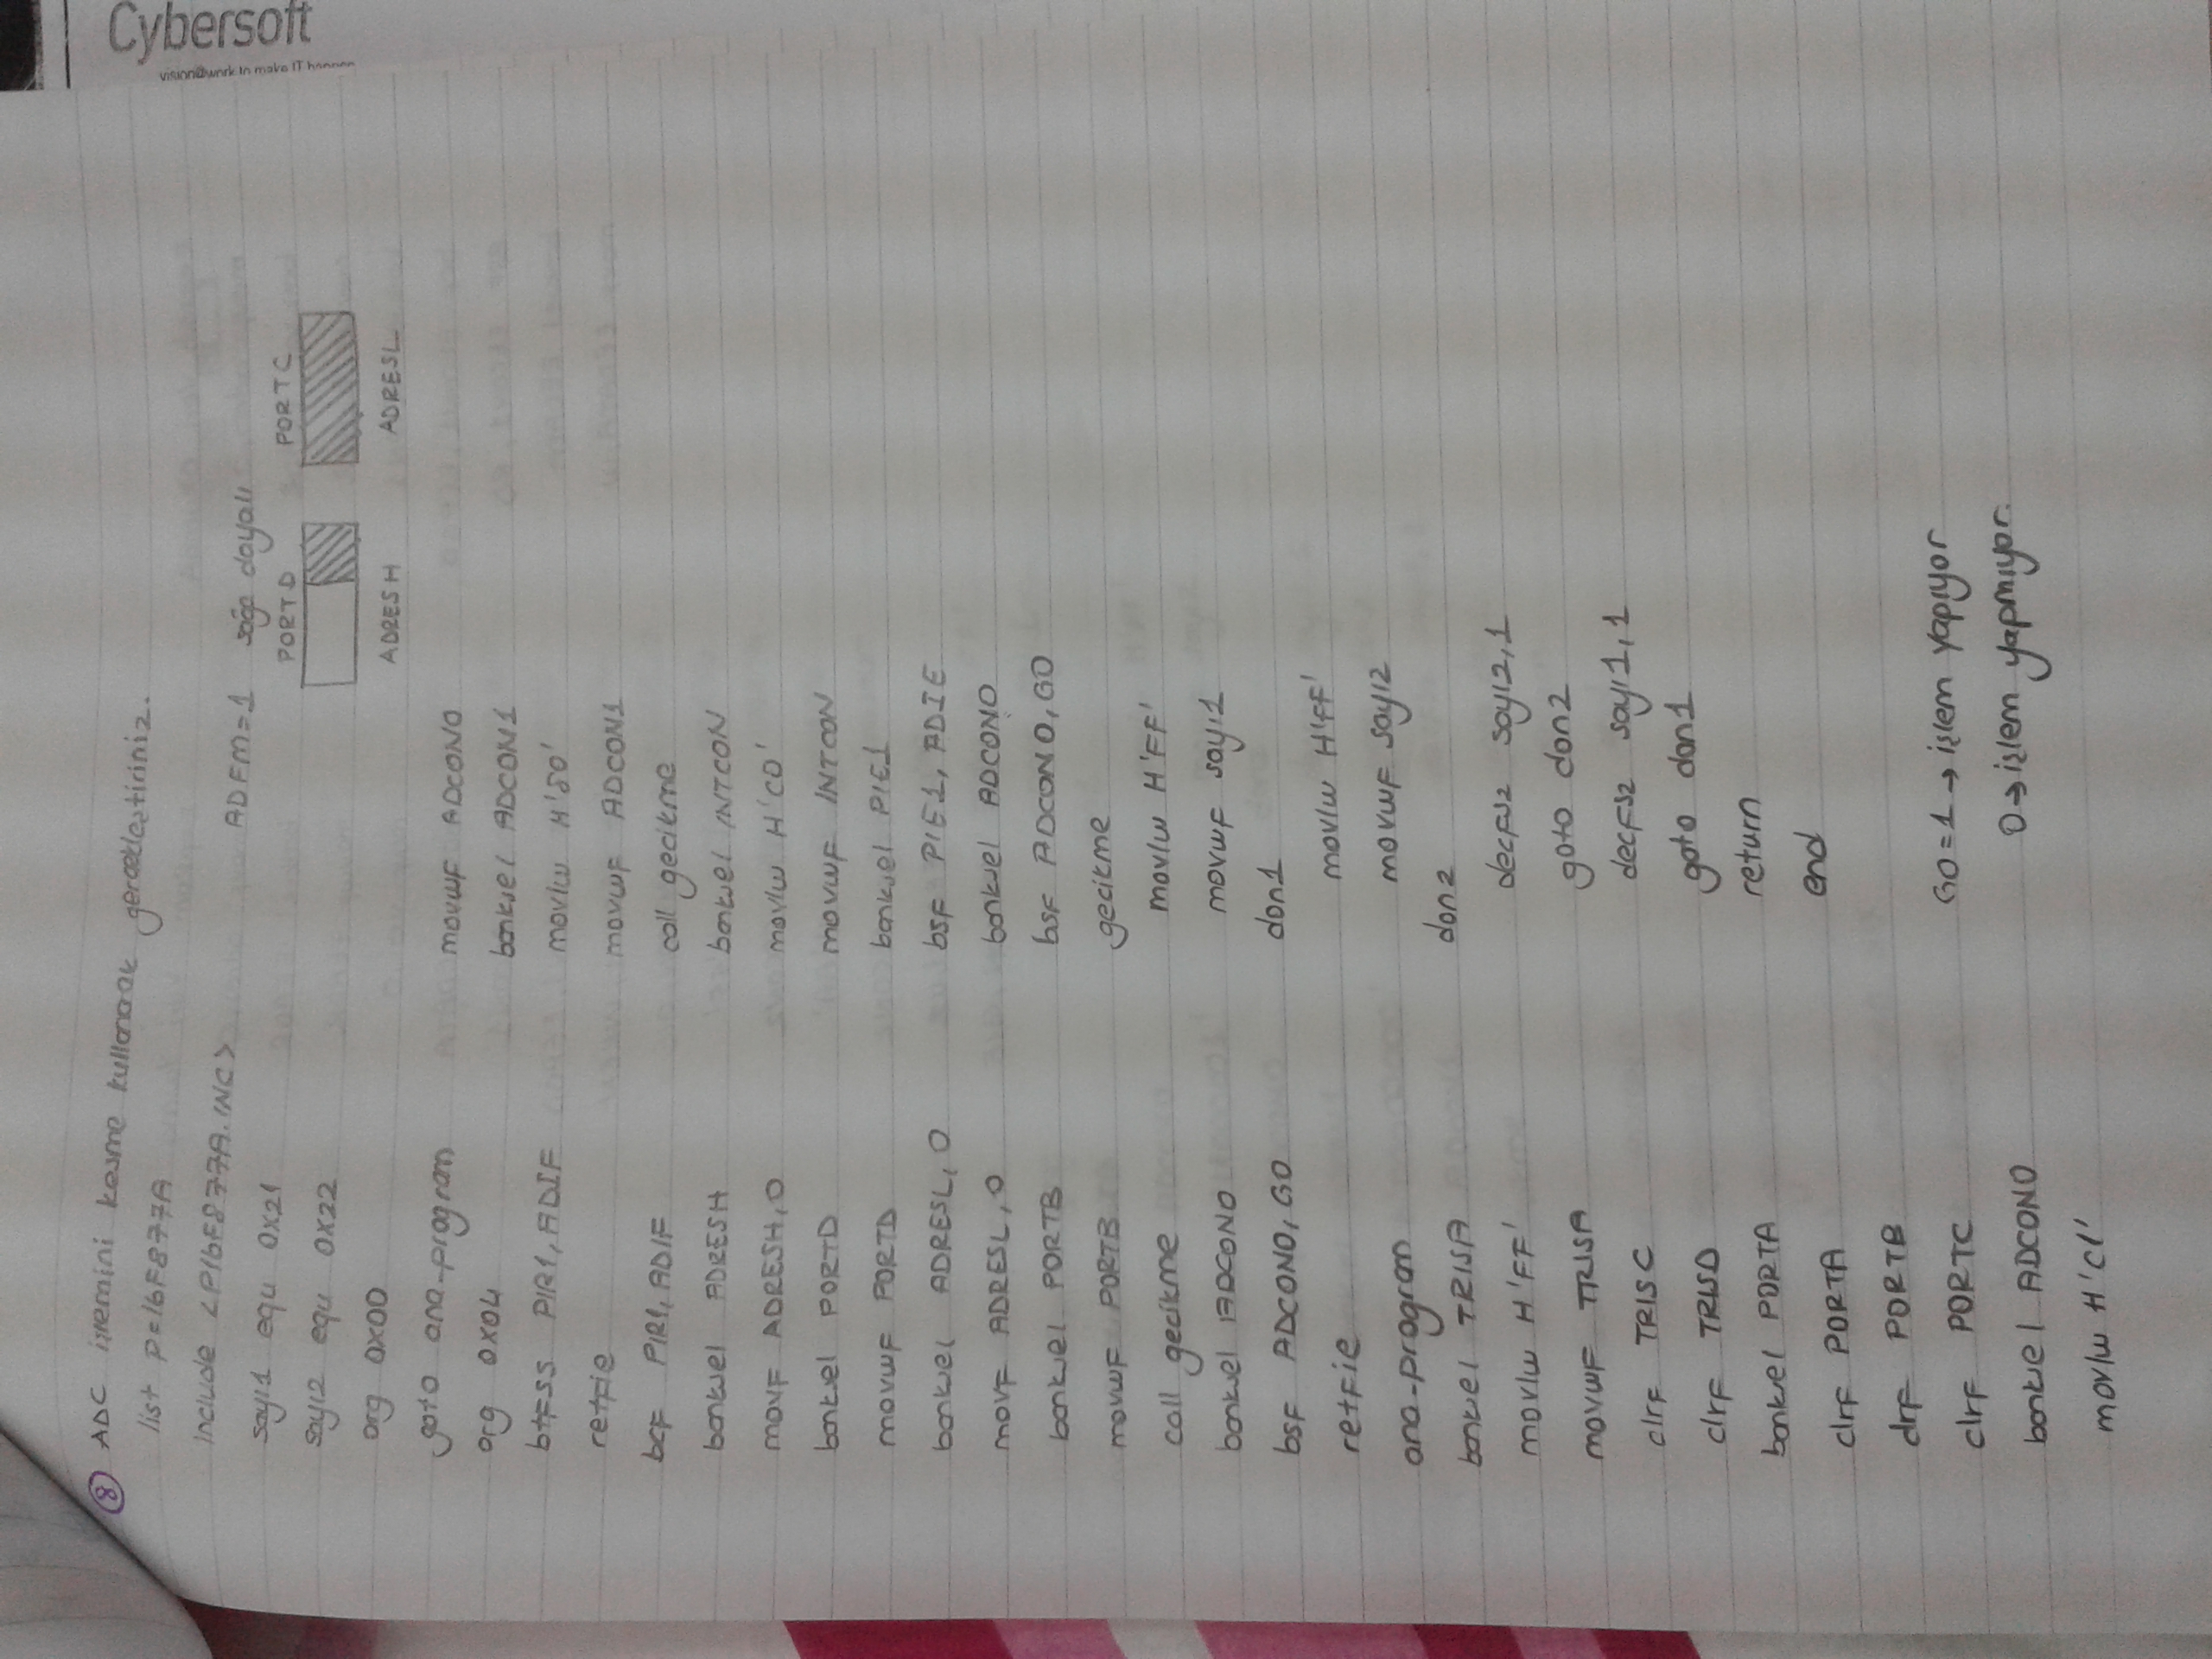 8 ADC işlemini kesme kullanarak gerçekleştiriniz.
list p=16F877A
include <P16F877A.INC>
sayı1 equ 0x21
sayı2 equ 0x22
org 0x00
goto ana-program
org 0x04
btfss PIR1, ADIF
retfie
bcf PIR1, ADIF
banksel ADRESH
movf ADRESH, 0
banksel PORTD
movwf PORTD
banksel ADRESL, 0
movf ADRESL, 0
banksel PORTB
movwf PORTB
call gecikme
banksel ADCON0
bsf ADCON0, GO
retfie
ana-program
banksel TRISA
movlw H'FF'
movwf TRISA
clrf TRISC
clrf TRISD
banksel PORTA
clrf PORTA
clrf PORTB
clrf PORTC
banksel ADCON0
movlw H'C1'
ADFM=1 sağa dayalı
PORTD PORTC
ADRESH ADRESL
movwf ADCON0
banksel ADCON1
movlw H'80'
movwf ADCON1
call gecikme
banksel INTCON
movlw H'C0'
movwf INTCON
banksel PIE1
bsf PIE1, ADIE
banksel ADCON0
bsf ADCON0, GO
gecikme
movlw H'FF'
movwf sayı1
don1
movlw H'FF'
movwf sayı2
don2
decfsz sayı2, 1
goto don2
decfsz sayı1, 1
goto don1
return
end
GO=1 → işlem yapıyor
0 → işlem yapmıyor.
Cybersoft